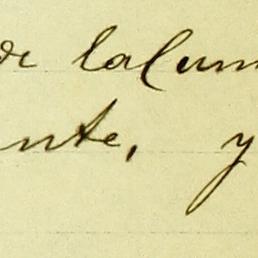 de lacum
nte, y